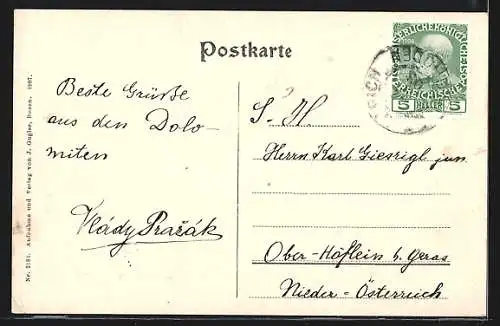 Postkarte
Beste Grüße
aus den Dolo-
miten
Vlády Pražák
S. H
Herrn Karl Giesrigl jun
Ober-Höflein b. Geras
Nieder-Österreich
5 HELLER 5
Nr. 2181. Aufnahme und Verlag von J. Gugler, Bozen. 1907.